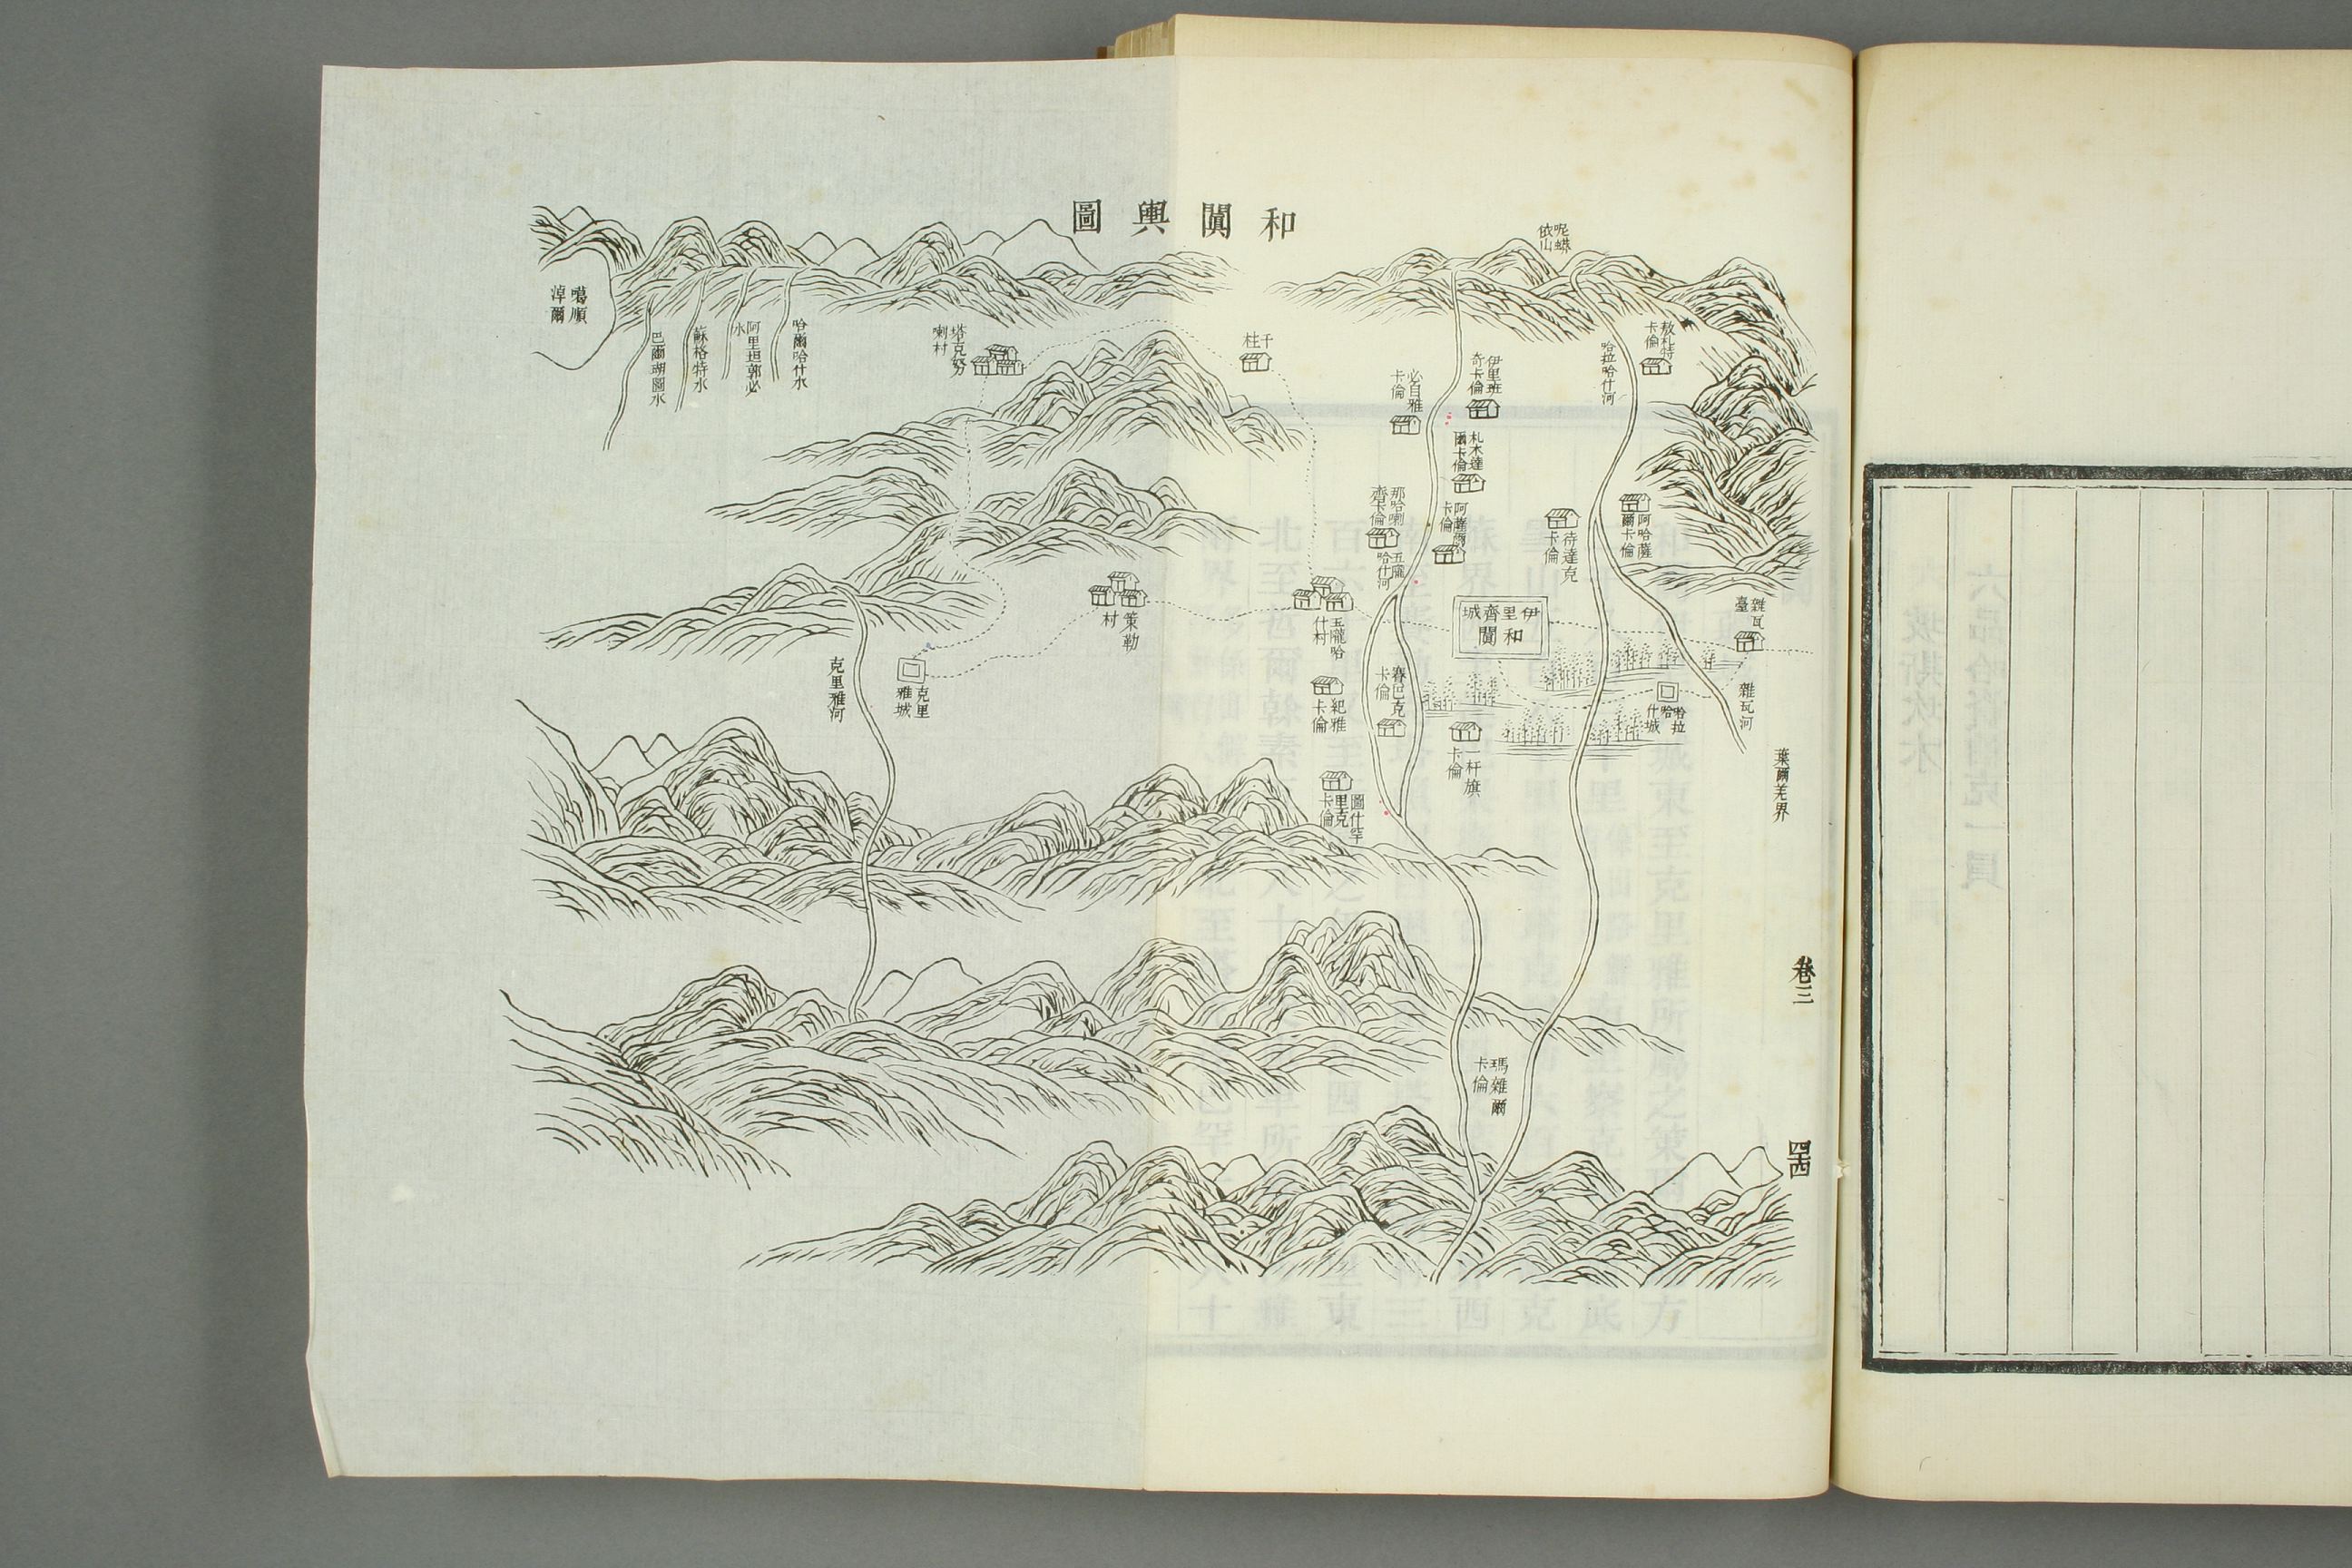 和闐輿圖
呢蟒依山
敖札特卡倫
哈拉哈什河
伊里班奇卡倫
必自雅卡倫
札木達爾卡倫
阿薩爾卡倫
那哈喇齊卡倫
五隴哈什河
待達克卡倫
阿哈薩爾卡倫
雜瓦臺
雜瓦河
葉爾羌界
伊里齊城
和闐
哈拉哈什城
一杆旗卡倫
賽巴克卡倫
五隴哈什村
紀雅卡倫
圖什罕里克卡倫
瑪雜爾卡倫
千柱
策勒村
塔克努喇村
克里雅城
克里雅河
哈爾哈什水
阿里坦郭必水
蘇格特水
巴爾瑚圖水
噶順淖爾
卷三
四西